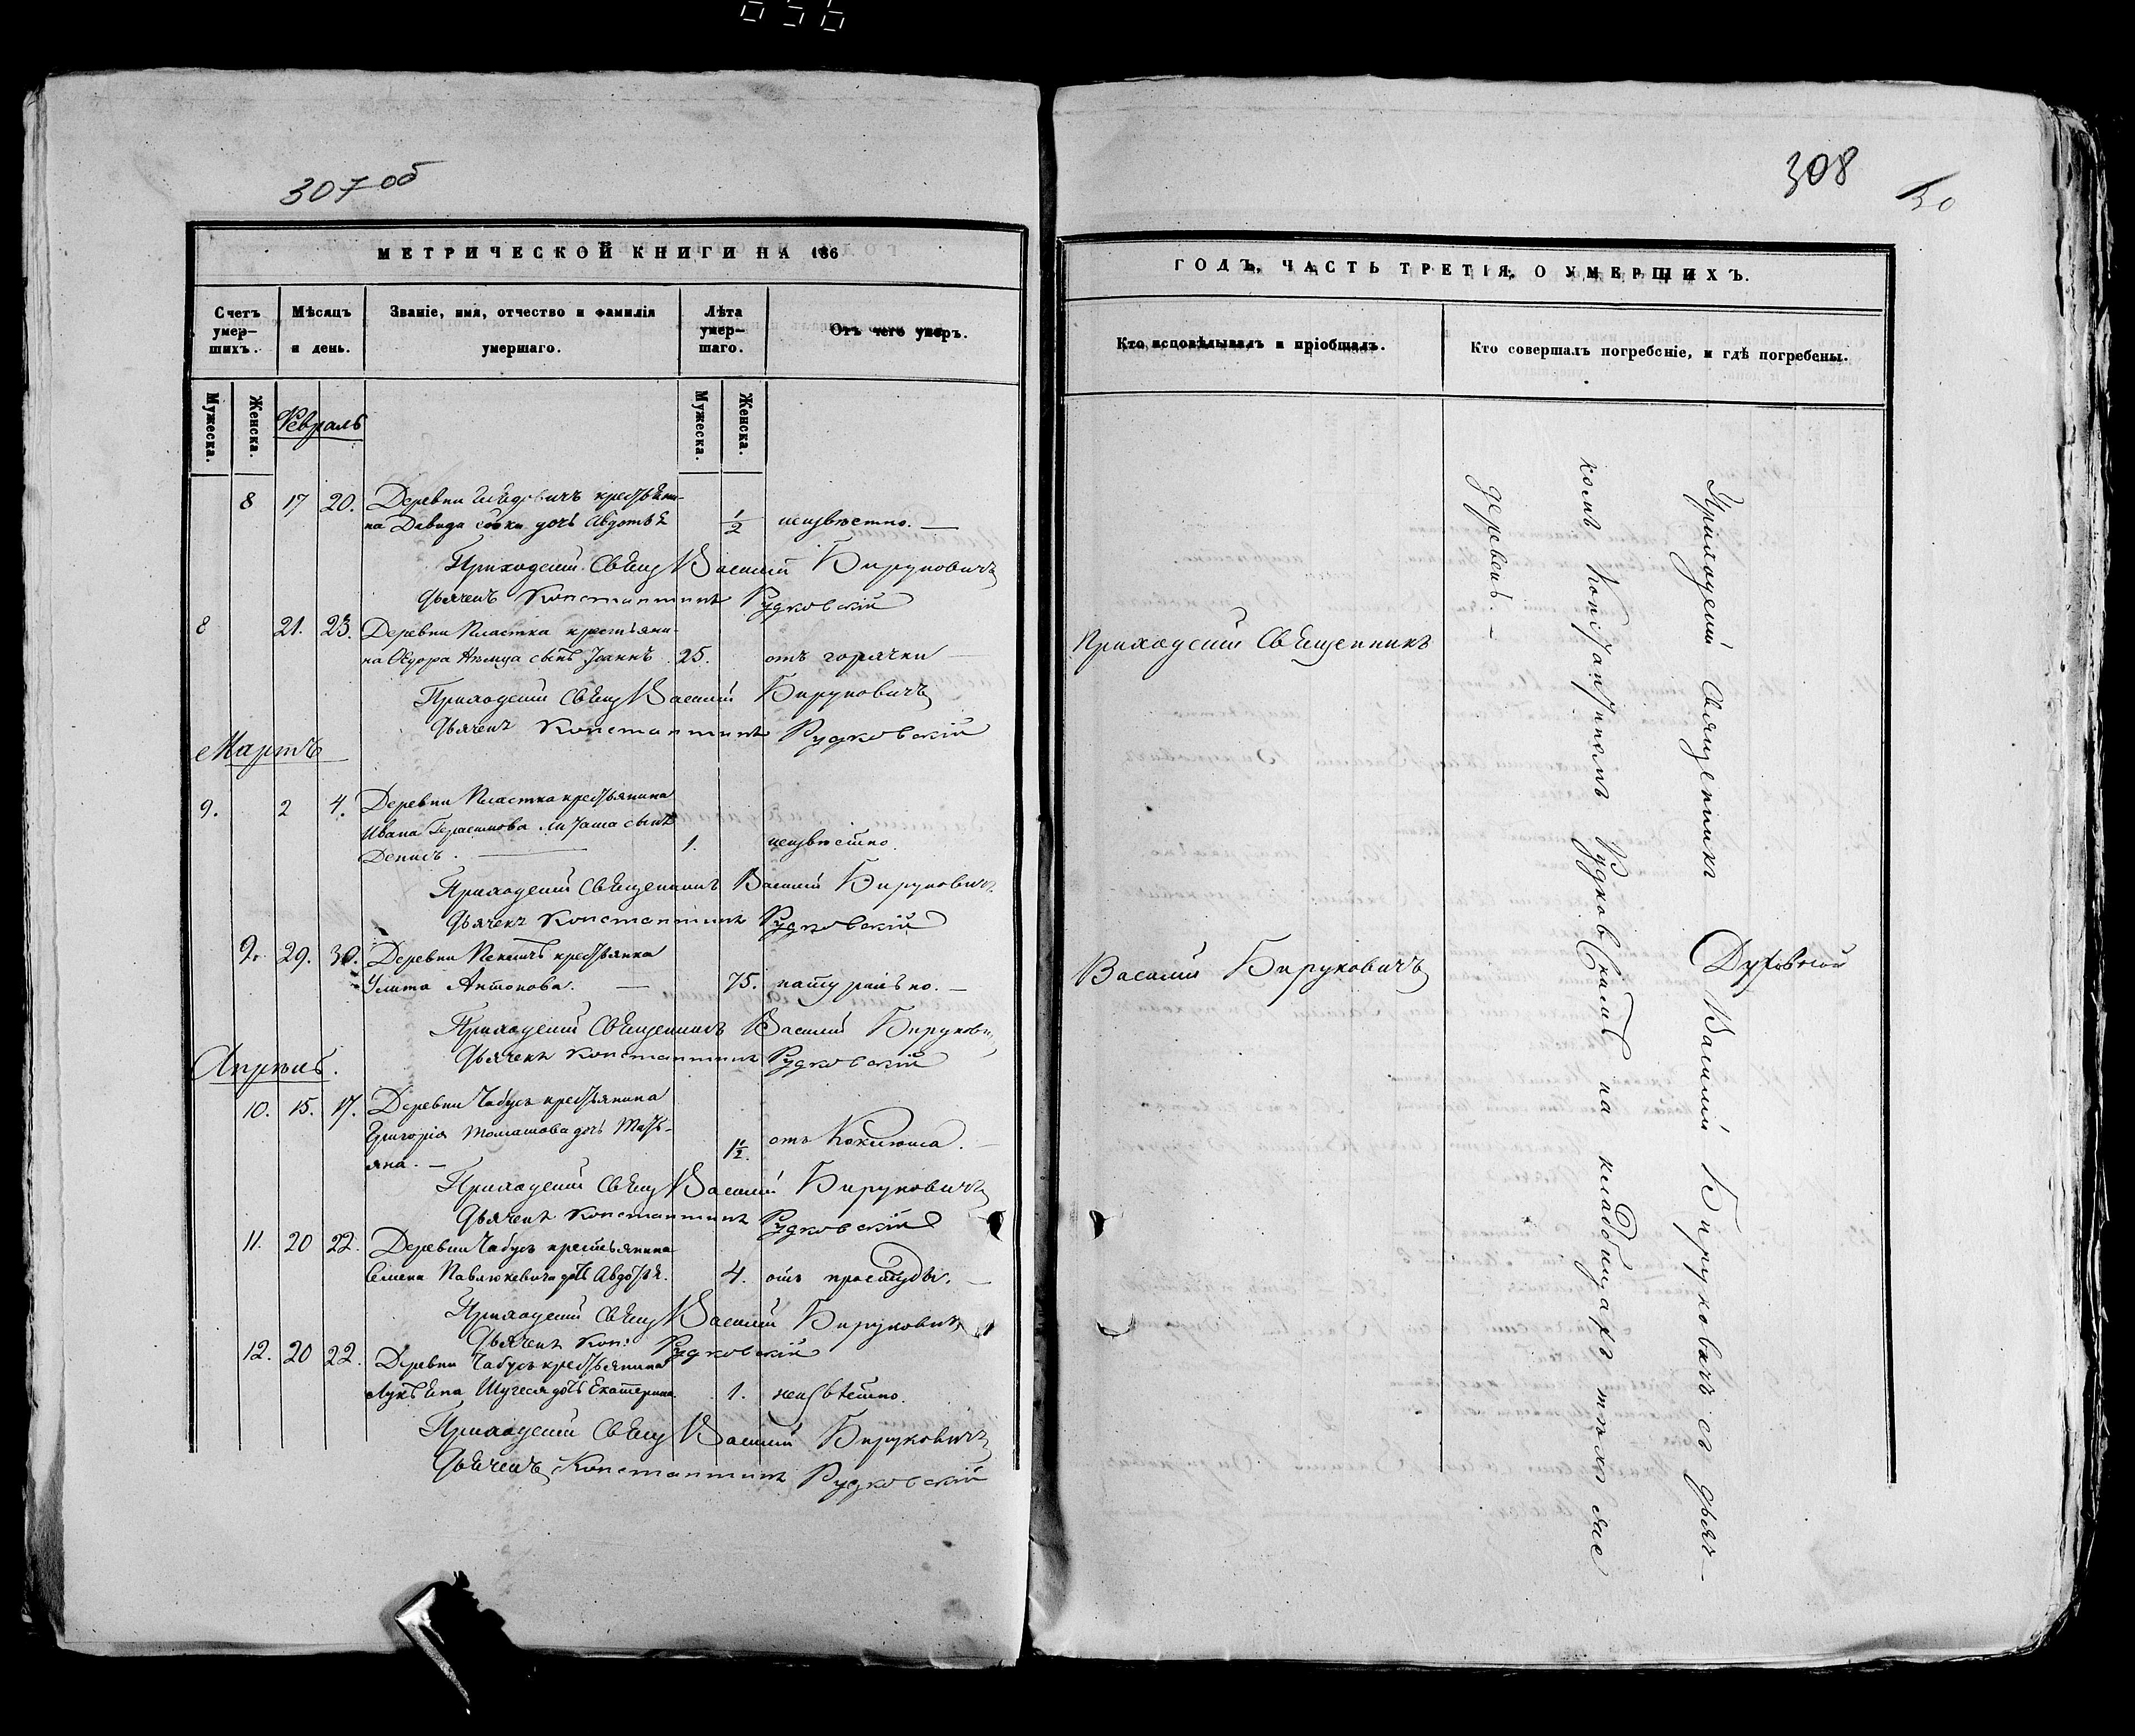 056
307 об
МЕТРИЧЕСКОЙ КНИГИ НА 186
Счетъ умер-шихъ.
Мѣсяцъ и день.
Званіе, имя, отчество и фамилія умершаго.
Лѣта умер-шаго.
Отъ чего умеръ.
Мужеска.
Женска.
Мужеска.
Женска.
Февраль
8 17 20. Деревни крестьяни-
на Давида дочь Авдотья 1/2 неизвѣстно. —
Приходскій Свящ Василій Бируковичъ
Дьячекъ Константинъ Рудковскій
8 21. 23. Деревни Пластка крестьяни-
на Ѳедора сынъ Іоаннъ 25. отъ горячки —
Приходскій Свящ Василій Бируковичъ
Дьячекъ Константинъ Рудковскій
Мартъ
9. 2 4. Деревни Пластка крестьянина
Ивана Герасимова сынъ
Денисъ. — 1. неизвѣстно.
Приходскій Священникъ Василій Бируковичъ
Дьячекъ Константинъ Рудковскій
9. 29. 30. Деревни крестьянка
Улита Антонова. — 75. натурально. —
Приходскій Священникъ Василій Бирукови
Дьячекъ Константинъ Рудковскій
Апрѣль.
10. 15. 17. Деревни Чабусъ крестьянина
Григорія Томашова дочь Тать-
яна. — 1 1/2. отъ Коклюша. —
Приходскій Свящ Василій Бируковичъ
Дьячекъ Константинъ Рудковскій
11. 20 22. Деревни Чабусъ крестьянина
Семена Павлюкевича дочь Авдотья. 4. отъ простуды. —
Приходскій Свящ Василій Бируковичъ
Дьячекъ Кон: Рудковскій
12. 20 22. Деревни Чабусъ крестьянина
Лукьяна дочь Екатерина 1. неизвѣстно.
Приходскій Свящ Василій Бируковичъ
Дьячекъ Константинъ Рудковскій
308
30
ГОДЪ, ЧАСТЬ ТРЕТІЯ, О УМЕРШИХЪ.
Кто исповѣдывалъ и пріобщалъ.
Кто совершалъ погребеніе, и гдѣ погребены.
Приходскій Священникъ
Василій Бируковичъ
Приходскій Священникъ Василій Бируковичъ съ дьяч-
комъ Константиномъ Рудковскимъ на кладбищахъ тѣхъ же
деревень. —
Духовной